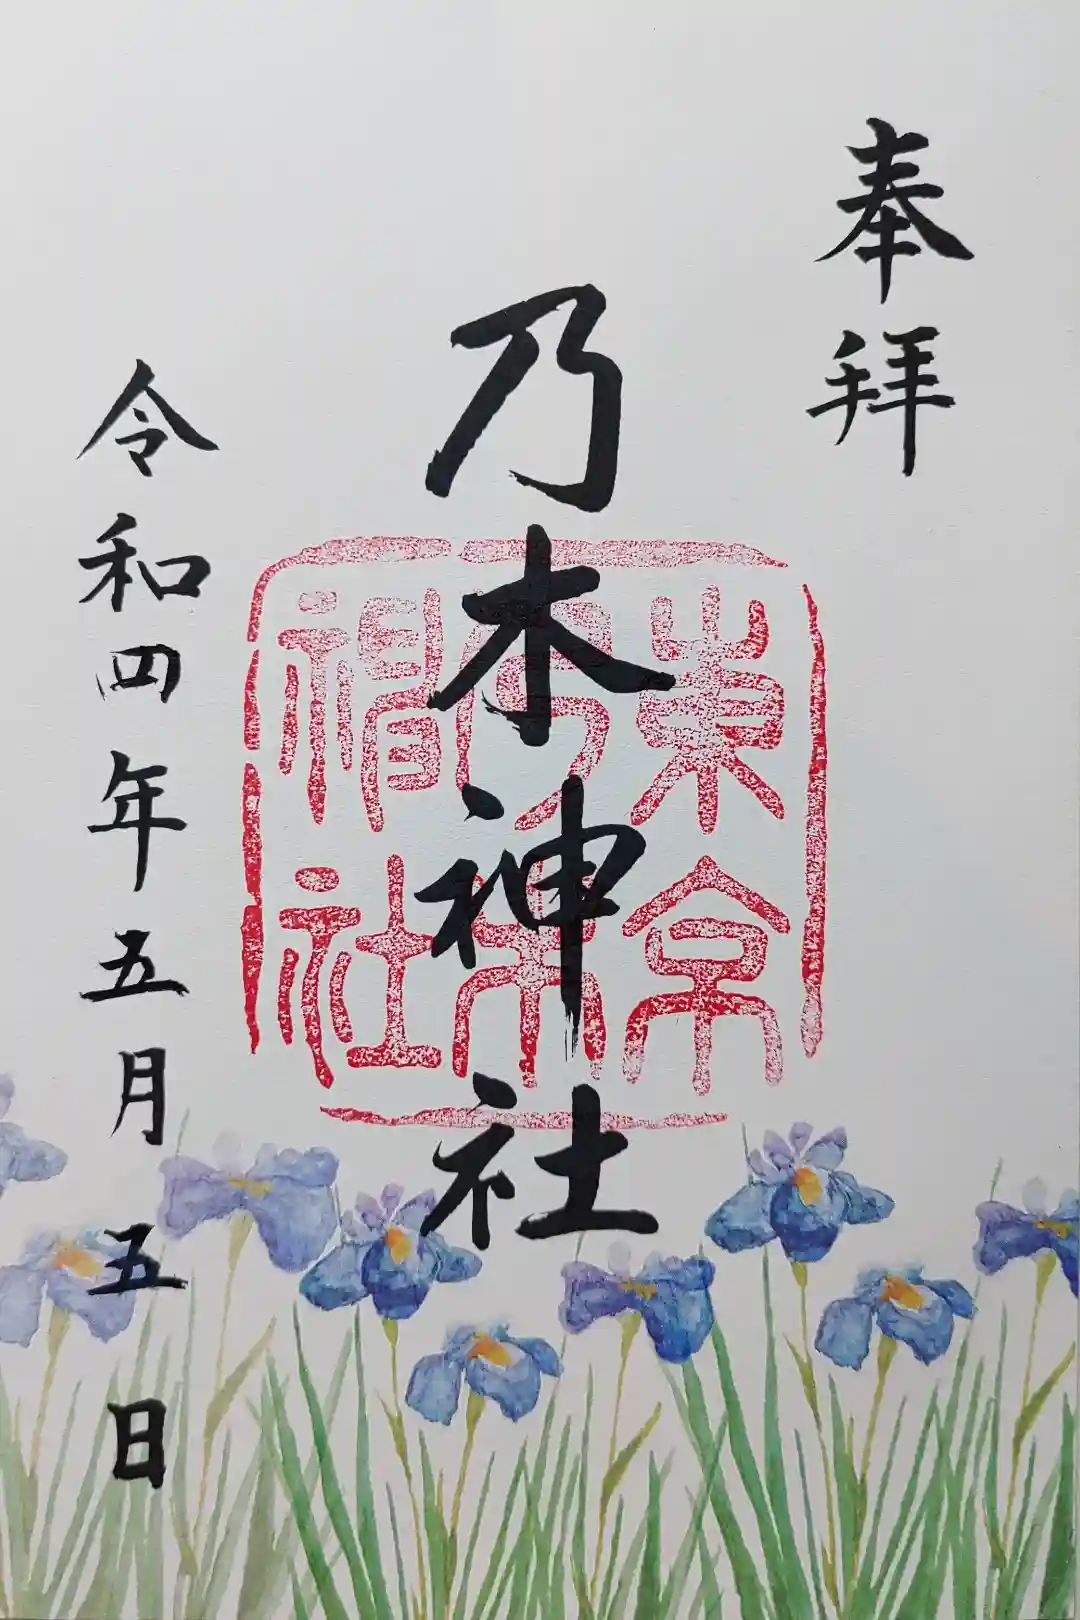 奉拝
乃木神社
東京
乃木
神社
令和四年五月五日